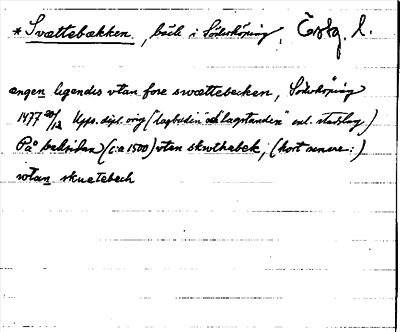 * Svættebækken, bäck i Söderköping, Östg. l.
ængen ligendes vtan fore swættebecken, Söderköping
1477 20/12 Upps. dipl. orig ("lagbuden" och "lagstunden" enl. stadslag)
På baksidan (c:a 1500) vtan skwthebek, (kort senere:)
wtan skuetebech